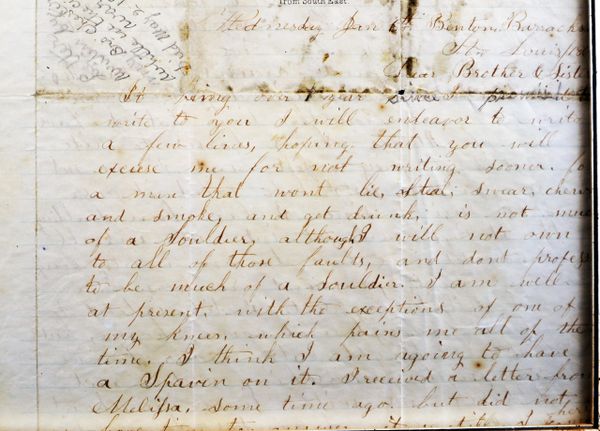 from South East.
Wednesday Jan 6th Benton Barracks
St Louis
Dear Brother & Sister
It being over 1 year since I promised to
write to you I will endeavor to write
a few lines, hoping that you will
excuse me for not writing sooner. for
a man that wont lie, steal, swear, chew
and smoke, and get drunk, is not much
of a souldier, although I will not own
to all of those faults, and dont profess
to be much of a Souldier. I am well
at present, with the exceptions of one of
my knees, which pains me all of the
time. I think I am agoing to have
a Spavin on it. I received a letter from
Melissa, some time ago. but did not